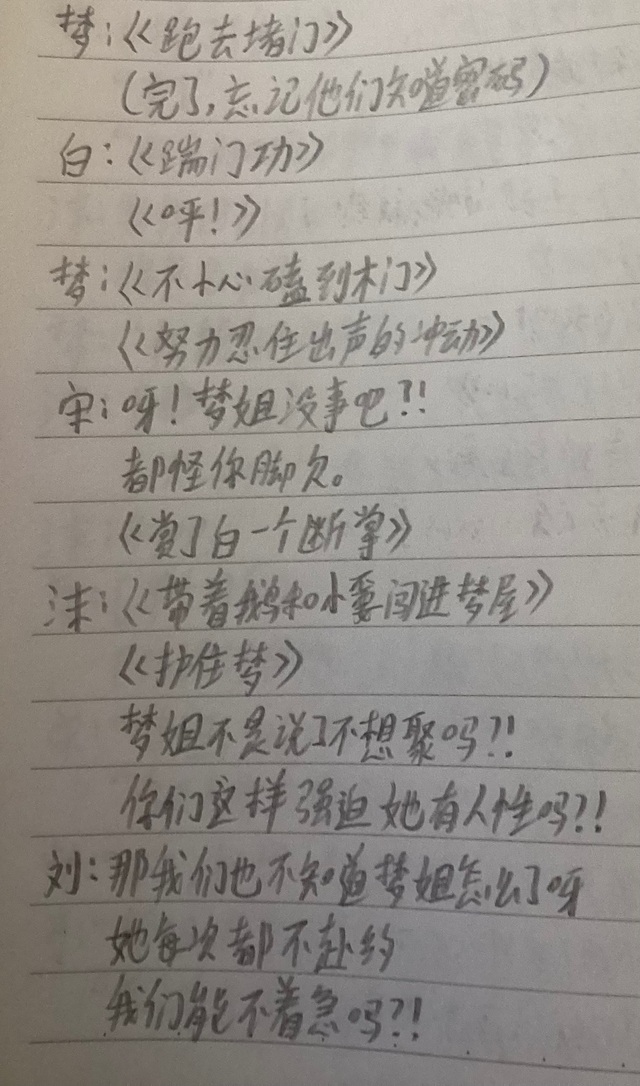 梦:《跑去堵门》
(完了,忘记他们知道密码)
白:《踹门功》
《呯!》
梦:《不小心磕到木门》
《努力忍住出声的冲动》
宋:呀!梦姐没事吧?!
都怪你脚欠。
《赏了白一个断掌》
沫:《带着鹅和小要闯进梦屋》
《护住梦》
梦姐不是说了不想聚吗?!
你们这样强迫她有人性吗?!
刘:那我们也不知道梦姐怎么了呀
她每次都不赴约
我们能不着急吗?!